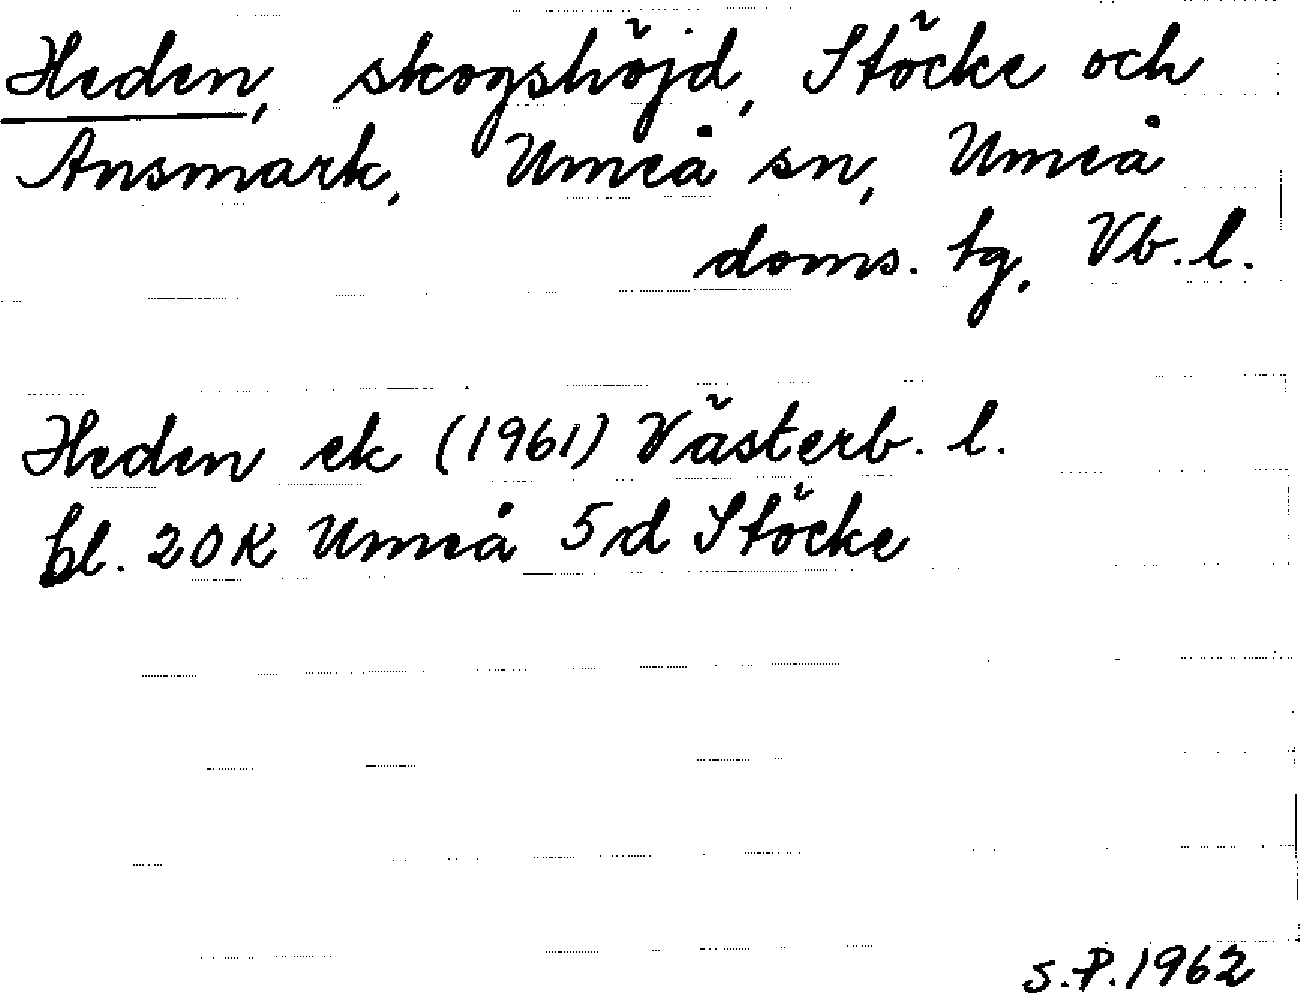 Heden, skogshöjd, Stöcke och
Ansmark, Umeå sn, Umeå
doms. tg, Vb. l.
Heden ek (1961) Västerb. l.
bl. 20K Umeå 5d Stöcke
S.P. 1962